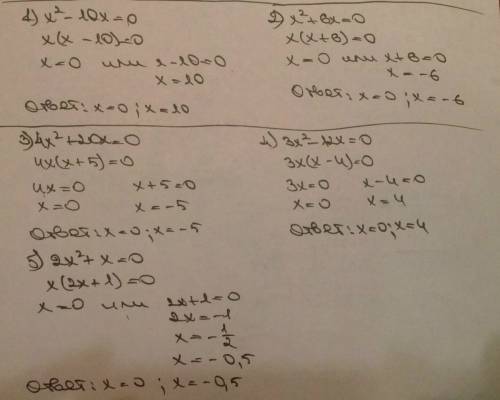 1) x² - 10x = 0
x(x - 10) = 0
x = 0 или x - 10 = 0
x = 10
Ответ: x = 0 ; x = 10
2) x² + 6x = 0
x(x + 6) = 0
x = 0 или x + 6 = 0
x = -6
Ответ: x = 0 ; x = -6
3) 4x² + 20x = 0
4x(x + 5) = 0
4x = 0 x + 5 = 0
x = 0 x = -5
Ответ: x = 0 ; x = -5
4) 3x² - 12x = 0
3x(x - 4) = 0
3x = 0 x - 4 = 0
x = 0 x = 4
Ответ: x = 0 ; x = 4
5) 2x² + x = 0
x(2x + 1) = 0
x = 0 или 2x + 1 = 0
2x = -1
x = -1/2
x = -0,5
Ответ: x = 0 ; x = -0,5